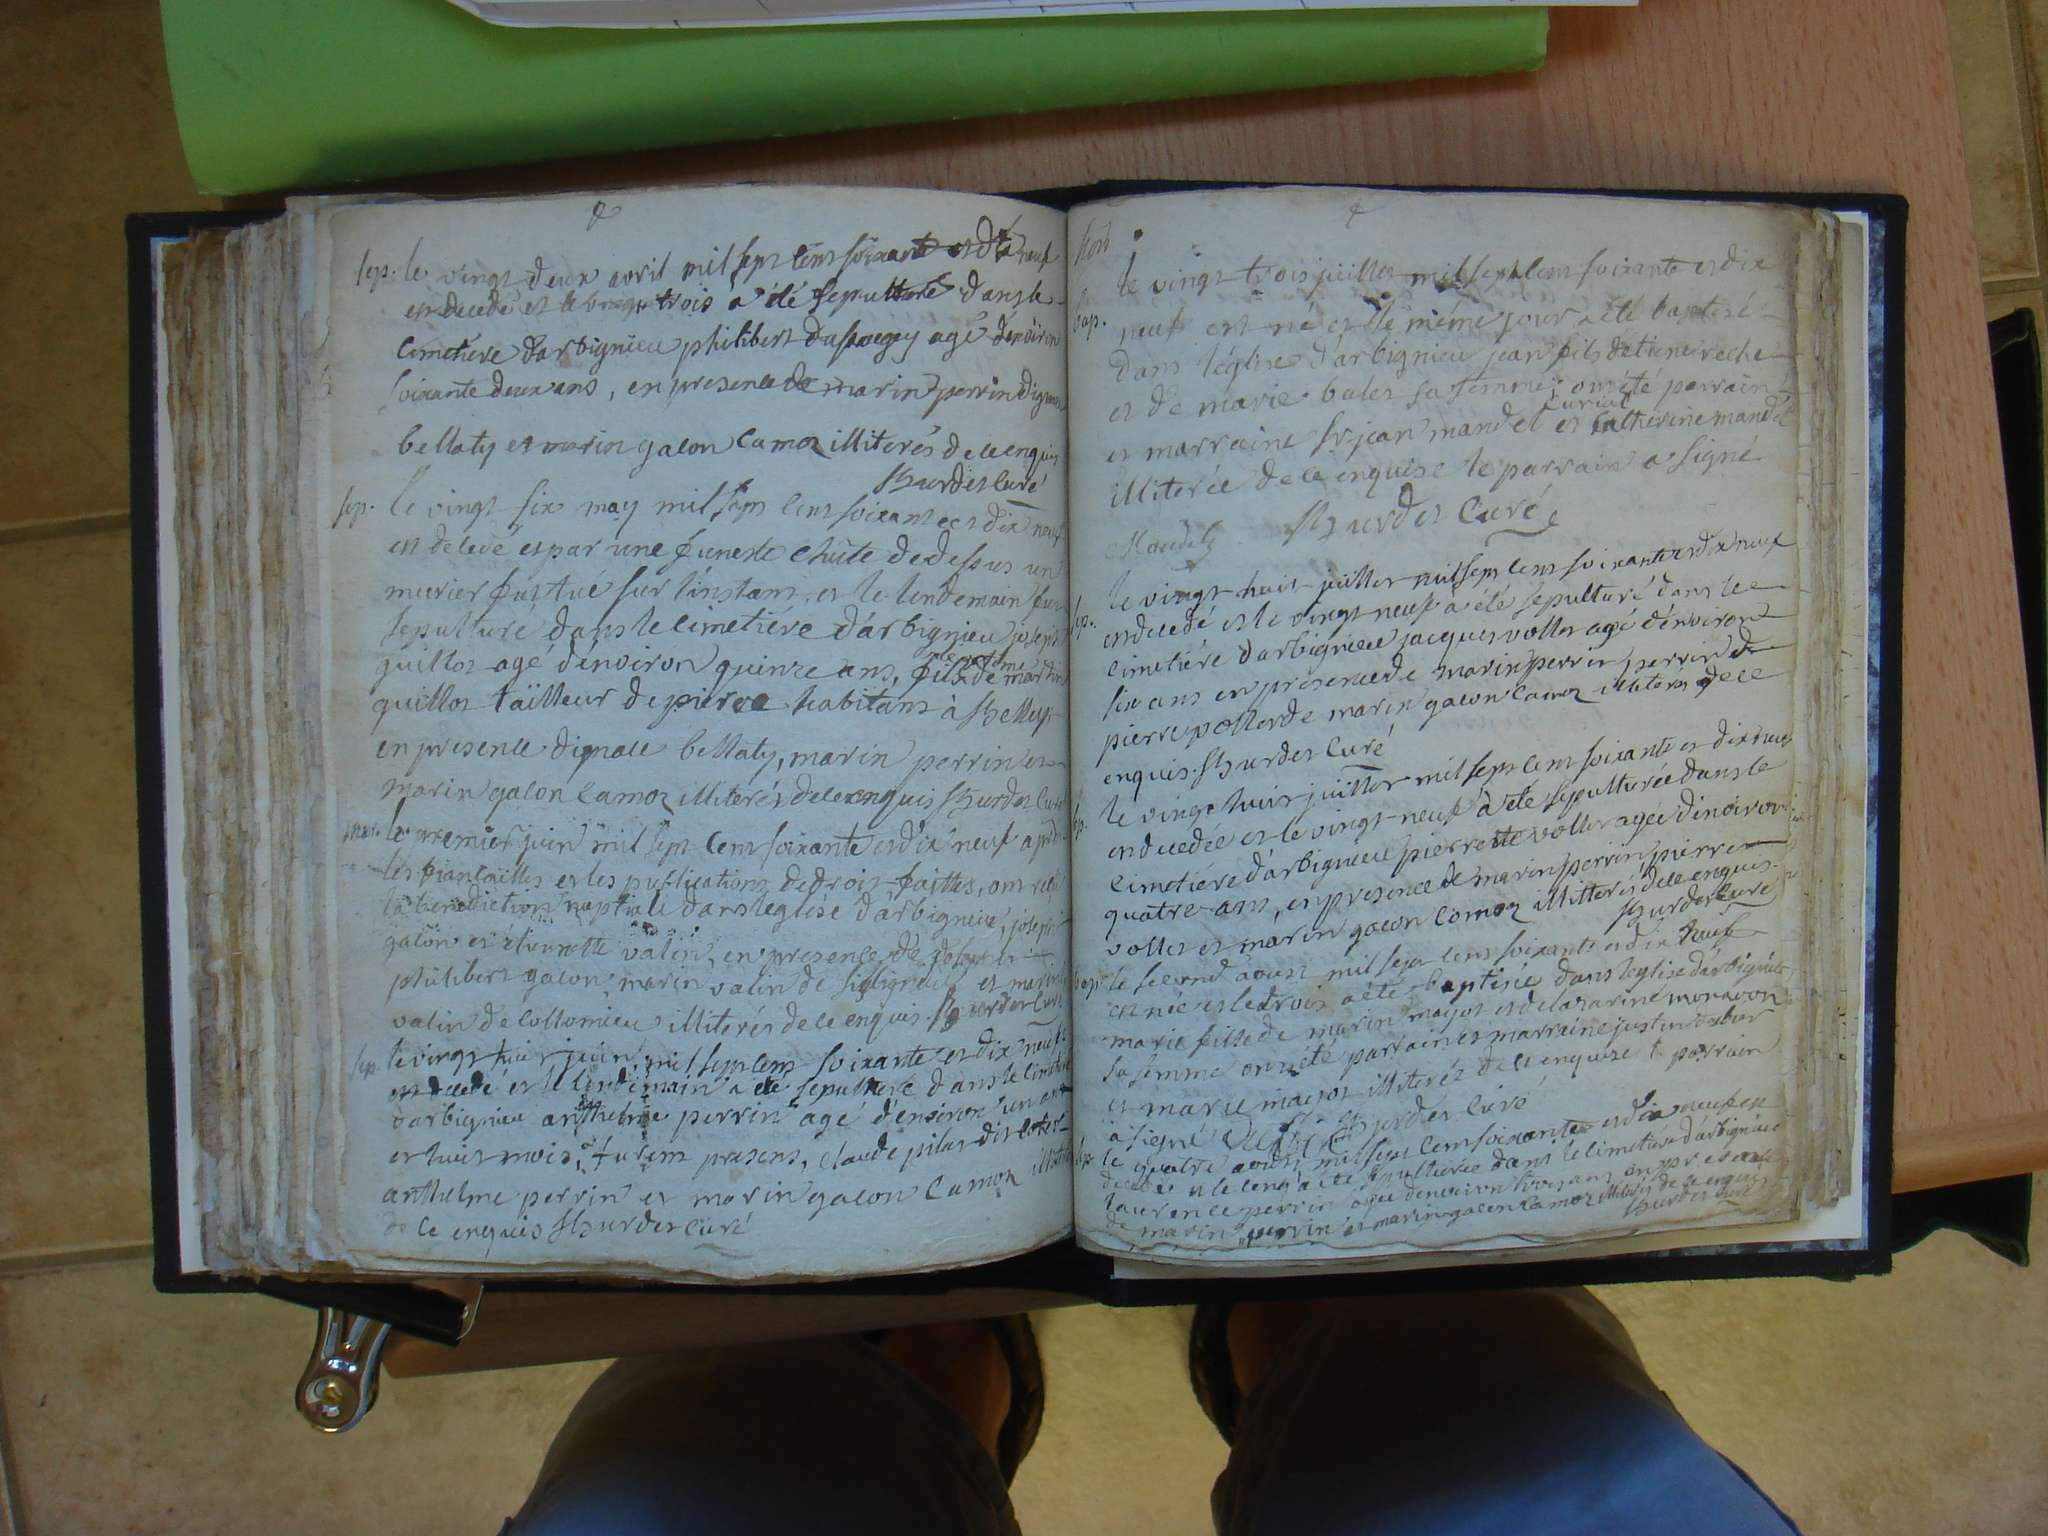 sep. le vingt deux avril mil sept cens soixante et dix neuf
est decedé et le vingt trois a été sepulturé dans le
cimetiére d'arbignieu philibert dupongey agé d'énviron
soixante deux ans, en presence de marin perrin dignace
bellaty et marin galon lamoz illiterés de ce enquis
Hurdet curé
sep. le vingt six may mil sept cens soixante et dix neuf
est decedé et par une funeste chûte de dessus un
murier fut tué sur l'instant, et le lendemain fut
sepulturé dans le cimetiére d'arbignieu joseph
guillot agé d'énviron quinze ans, fils de
guillot tailleur de pierre habitant à Belley
en presence dignace bellaty, marin perrin et
marin galon lamoz illiterés de ce enquis Hurdet curé
mar. le premier juin mil sept cens soixante et dix neuf aprés
les fiancailles et les publications de droit faittes, ont reçu
la benediction nuptiale dans l'eglise d'arbignieu, joseph
galon et étiennette valin, en presence de
philibert galon, marin valin de et marin
valin de collomieu illiterés de ce enquis Hurdet curé
sep. le vingt huit juin mil sept cens soixante et dix neuf
est decedé et le lendemain a été sepulturé dans le cimetiére
d'arbignieu anthelme perrin agé d'environ un an
et huit mois, furent presens, claude pilat dit
anthelme perrin et marin galon lamoz illiterés
de ce enquis Hurdet curé
le vingt trois juillet mil sept cens soixante et dix
bap. neuf est né et le méme jour a été baptisé
dans l'église d'arbignieu jean fils d'étiene reche
et de marie balet sa femme, ont été parrain
curial
et marraine sr jean mandet et catherine mandet
illiterée de ce enquise le parrain a signé
Hurdet curé
le vingt huit juillet mil sept cens soixante et dix neuf
sep. est decedé et le vingt neuf a été sepulturé dans le
cimetiére d'arbignieu jacques vollet agé d'énviron
six ans en presence de marin perrin perrin de
pierre vollet de marin galon lamoz illiterés de ce
enquis Hurdet curé
le vingt huit juillet mil sept cens soixante et dix neuf
sep. est decedée et le vingt neuf à été sepulturée dans le
cimetiére d'arbignieu pierrette vollet agée d'énviron
quatre ans, en presence de marin perrin, pierre
vollet et marin galon lamoz illiterés de ce enquis
Hurdet curé
bap. le second aoust mil sept cens soixante et dix neuf
est née et le trois a été baptisée dans l'eglise d'arbignieu
marie fille de marin mayot et de lazarine
sa femme ont été parrain et marraine justin
et marie mayot illiterée de ce enquise le parrain
à signé Hurdet curé
sep. le quatre aoust mil sept cens soixante et dix neuf est
decedée et le cinq a été sepulturée dans le cimetiére d'arbignieu
laurence perrin agée d'énviron trois ans en presence
de marin perrin et marin galon lamoz illiterés de ce enquis
Hurdet curé